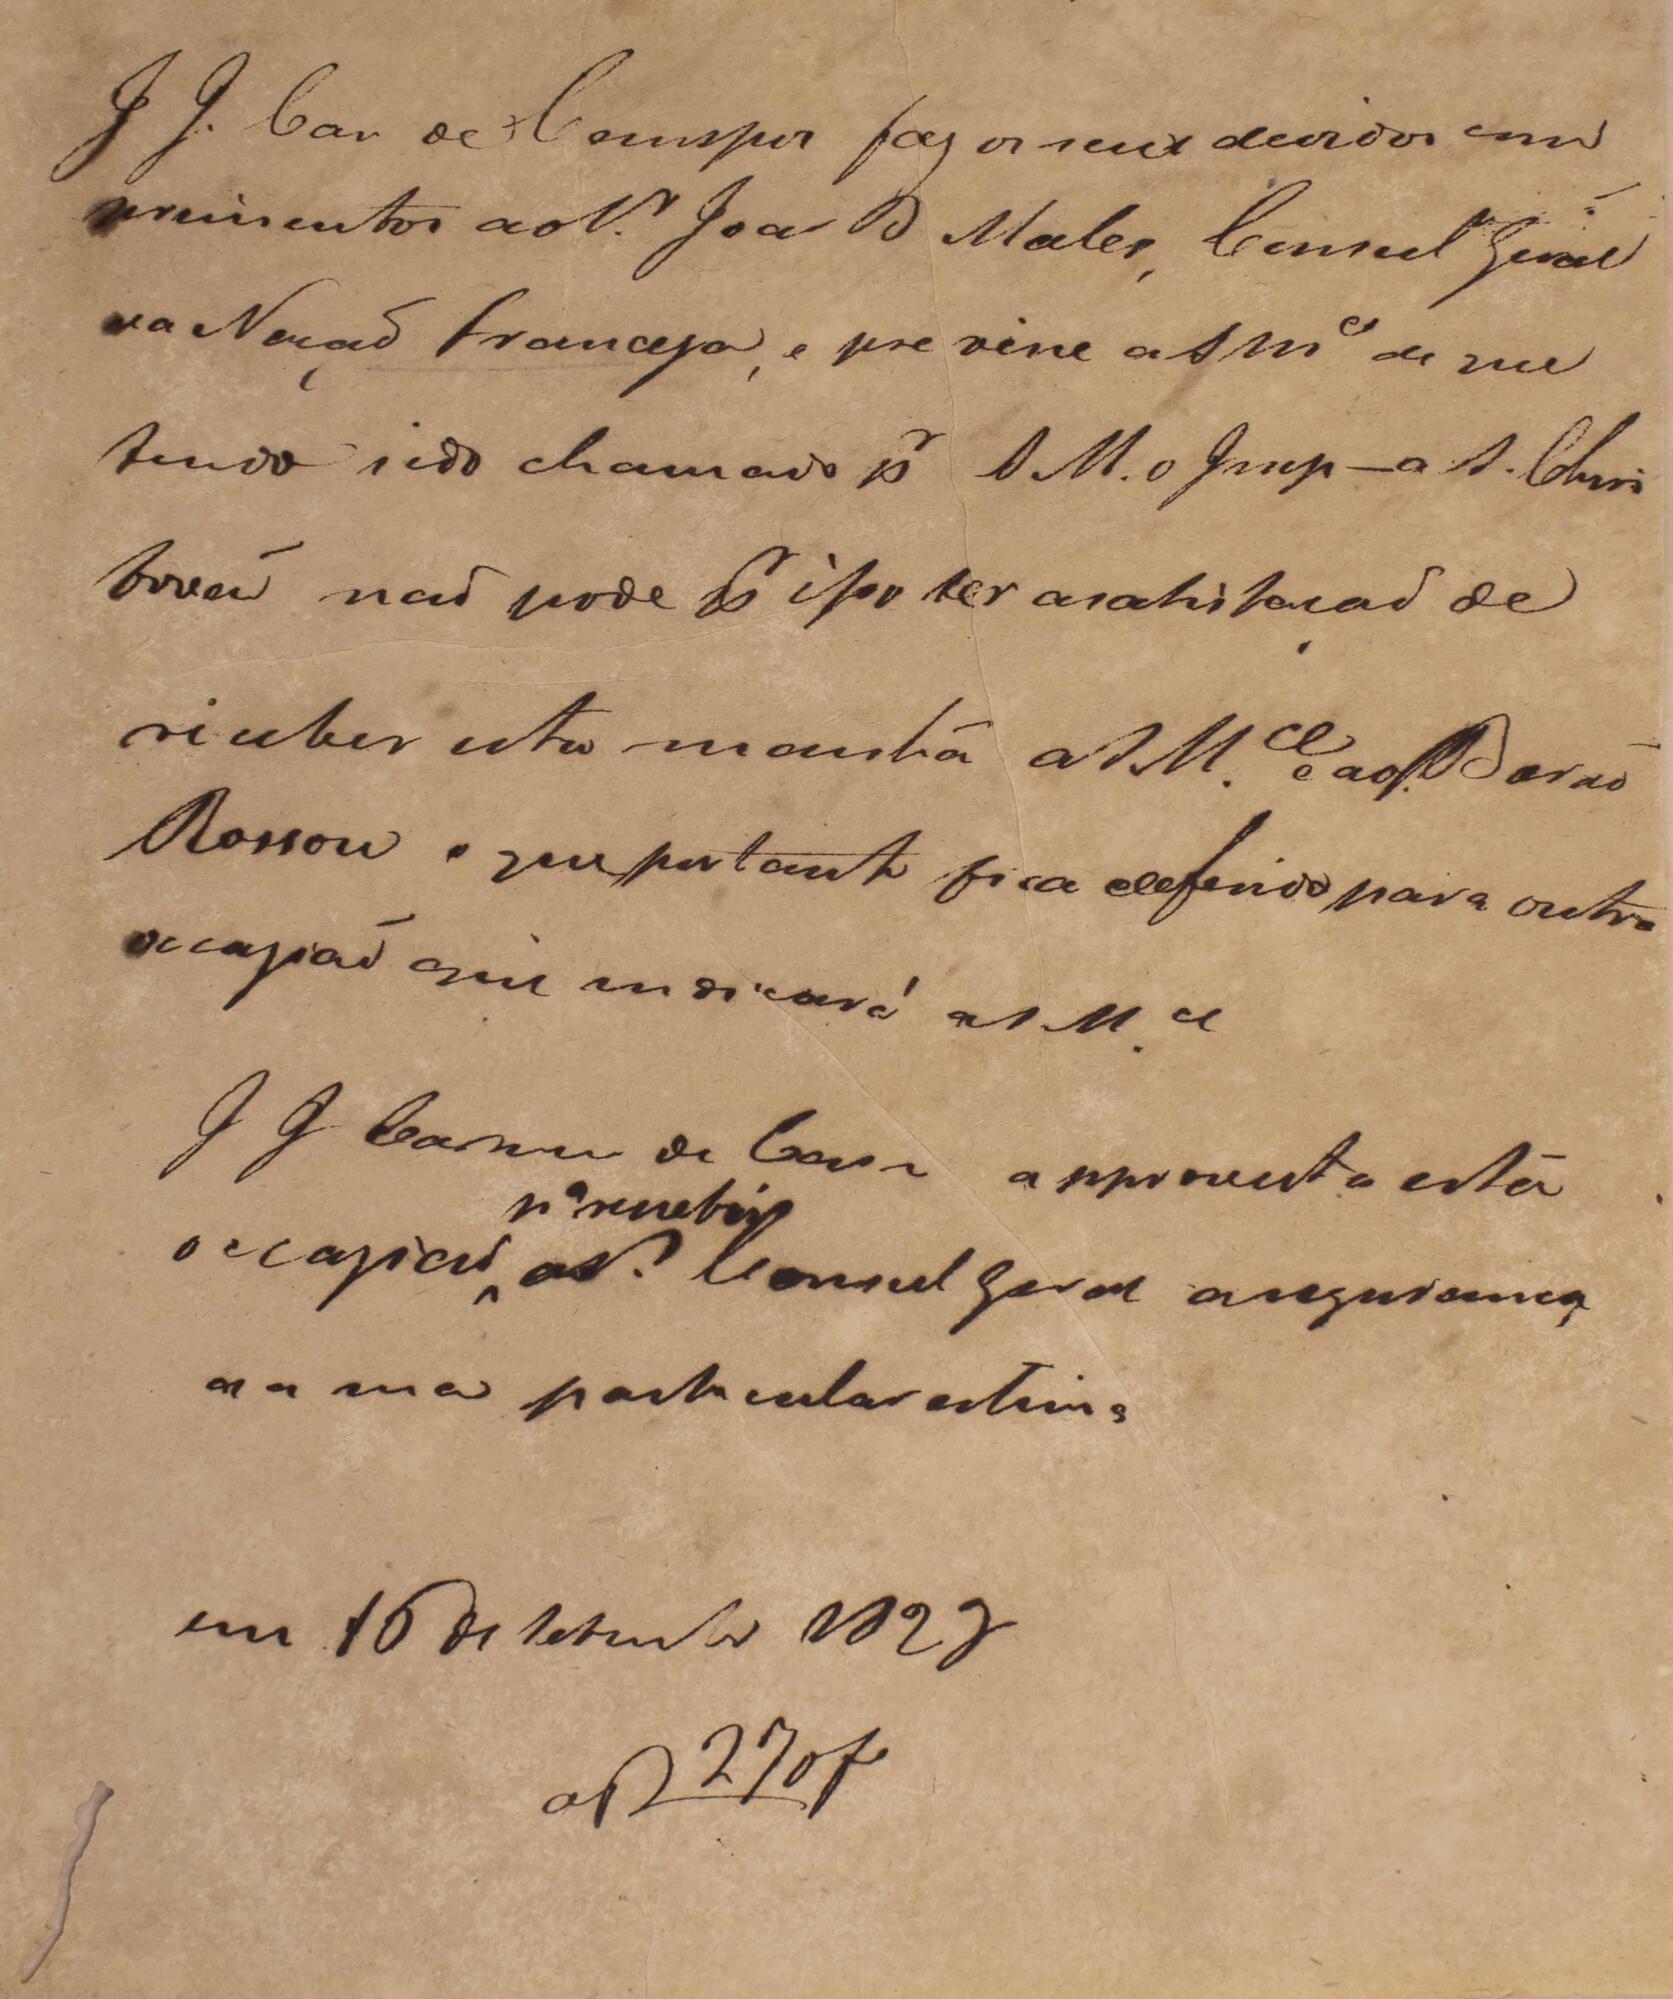 J J. Car de Campos faz os seus devidos com
primentos ao Sr. Joa B Maler, Consul Geral
da Naçaõ Franceza, e previne a S Mce de que
tendo sido chamado pr S M. o Imp—a S. Chris
tovaõ naõ pode pr isso ter a satisfaçaõ de
receber esta manhã a S M.ce e ao Sr. Baraõ
Rossou e que portanto fica deferido para outra
occaziaõ que indicará a S M.ce
J J Carneiro de Cam aproveita esta
occaziaõ pa renebir ao Sr. Consul Geral a segurança
da sua particular estima
em 16 de Setembro 1827